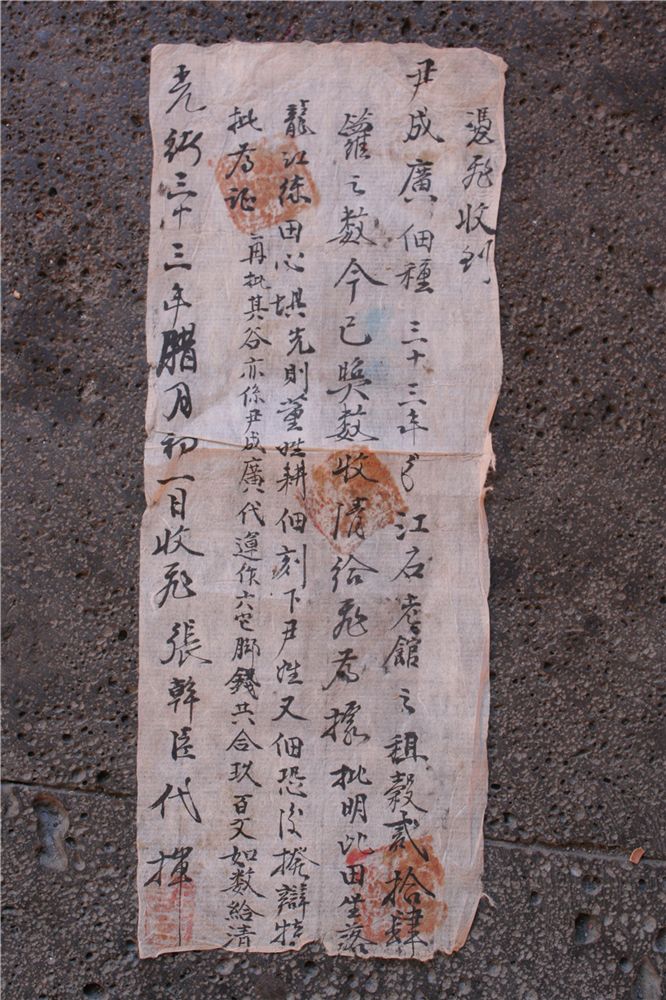 憑飛收到
尹成廣佃種三十三年㐅江石老館之租穀貳拾肆
籮之數今已照数收清給飛為據批明此田坐落
龍江練田心垻先則董姓耕佃刻下尹姓又佃恐後撥辯特
批為証 再批其谷亦係尹成廣代運作六它脚錢共合玖百文如数給清
光緒三十三年臘月初一日收飛張幹臣代揮